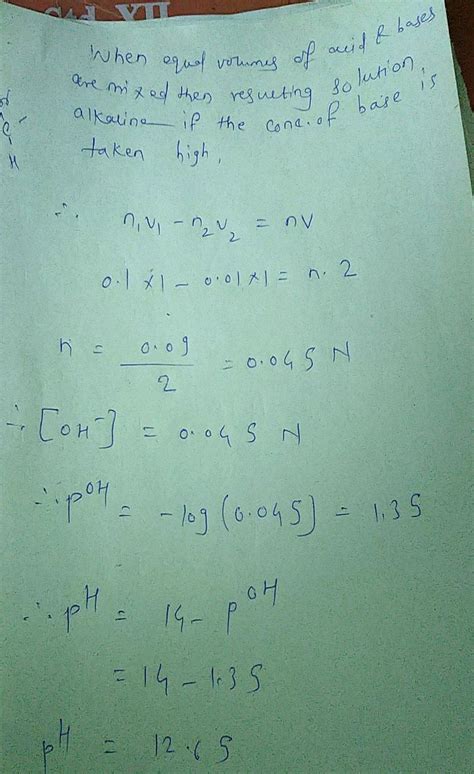 Std. XII
When equal volumes of acid & bases
are mixed then resulting solution,
alkaline if the conc. of base is
taken high,
∴ n₁v₁ - n₂v₂ = nv
0.1 × 1 - 0.01 × 1 = n. 2
n = 0.09 / 2 = 0.045 N
∴ [OH⁻] = 0.045 N
∴ p^OH = -log (0.045) = 1.35
∴ p^H = 14 - p^OH
= 14 - 1.35
p^H = 12.65
H